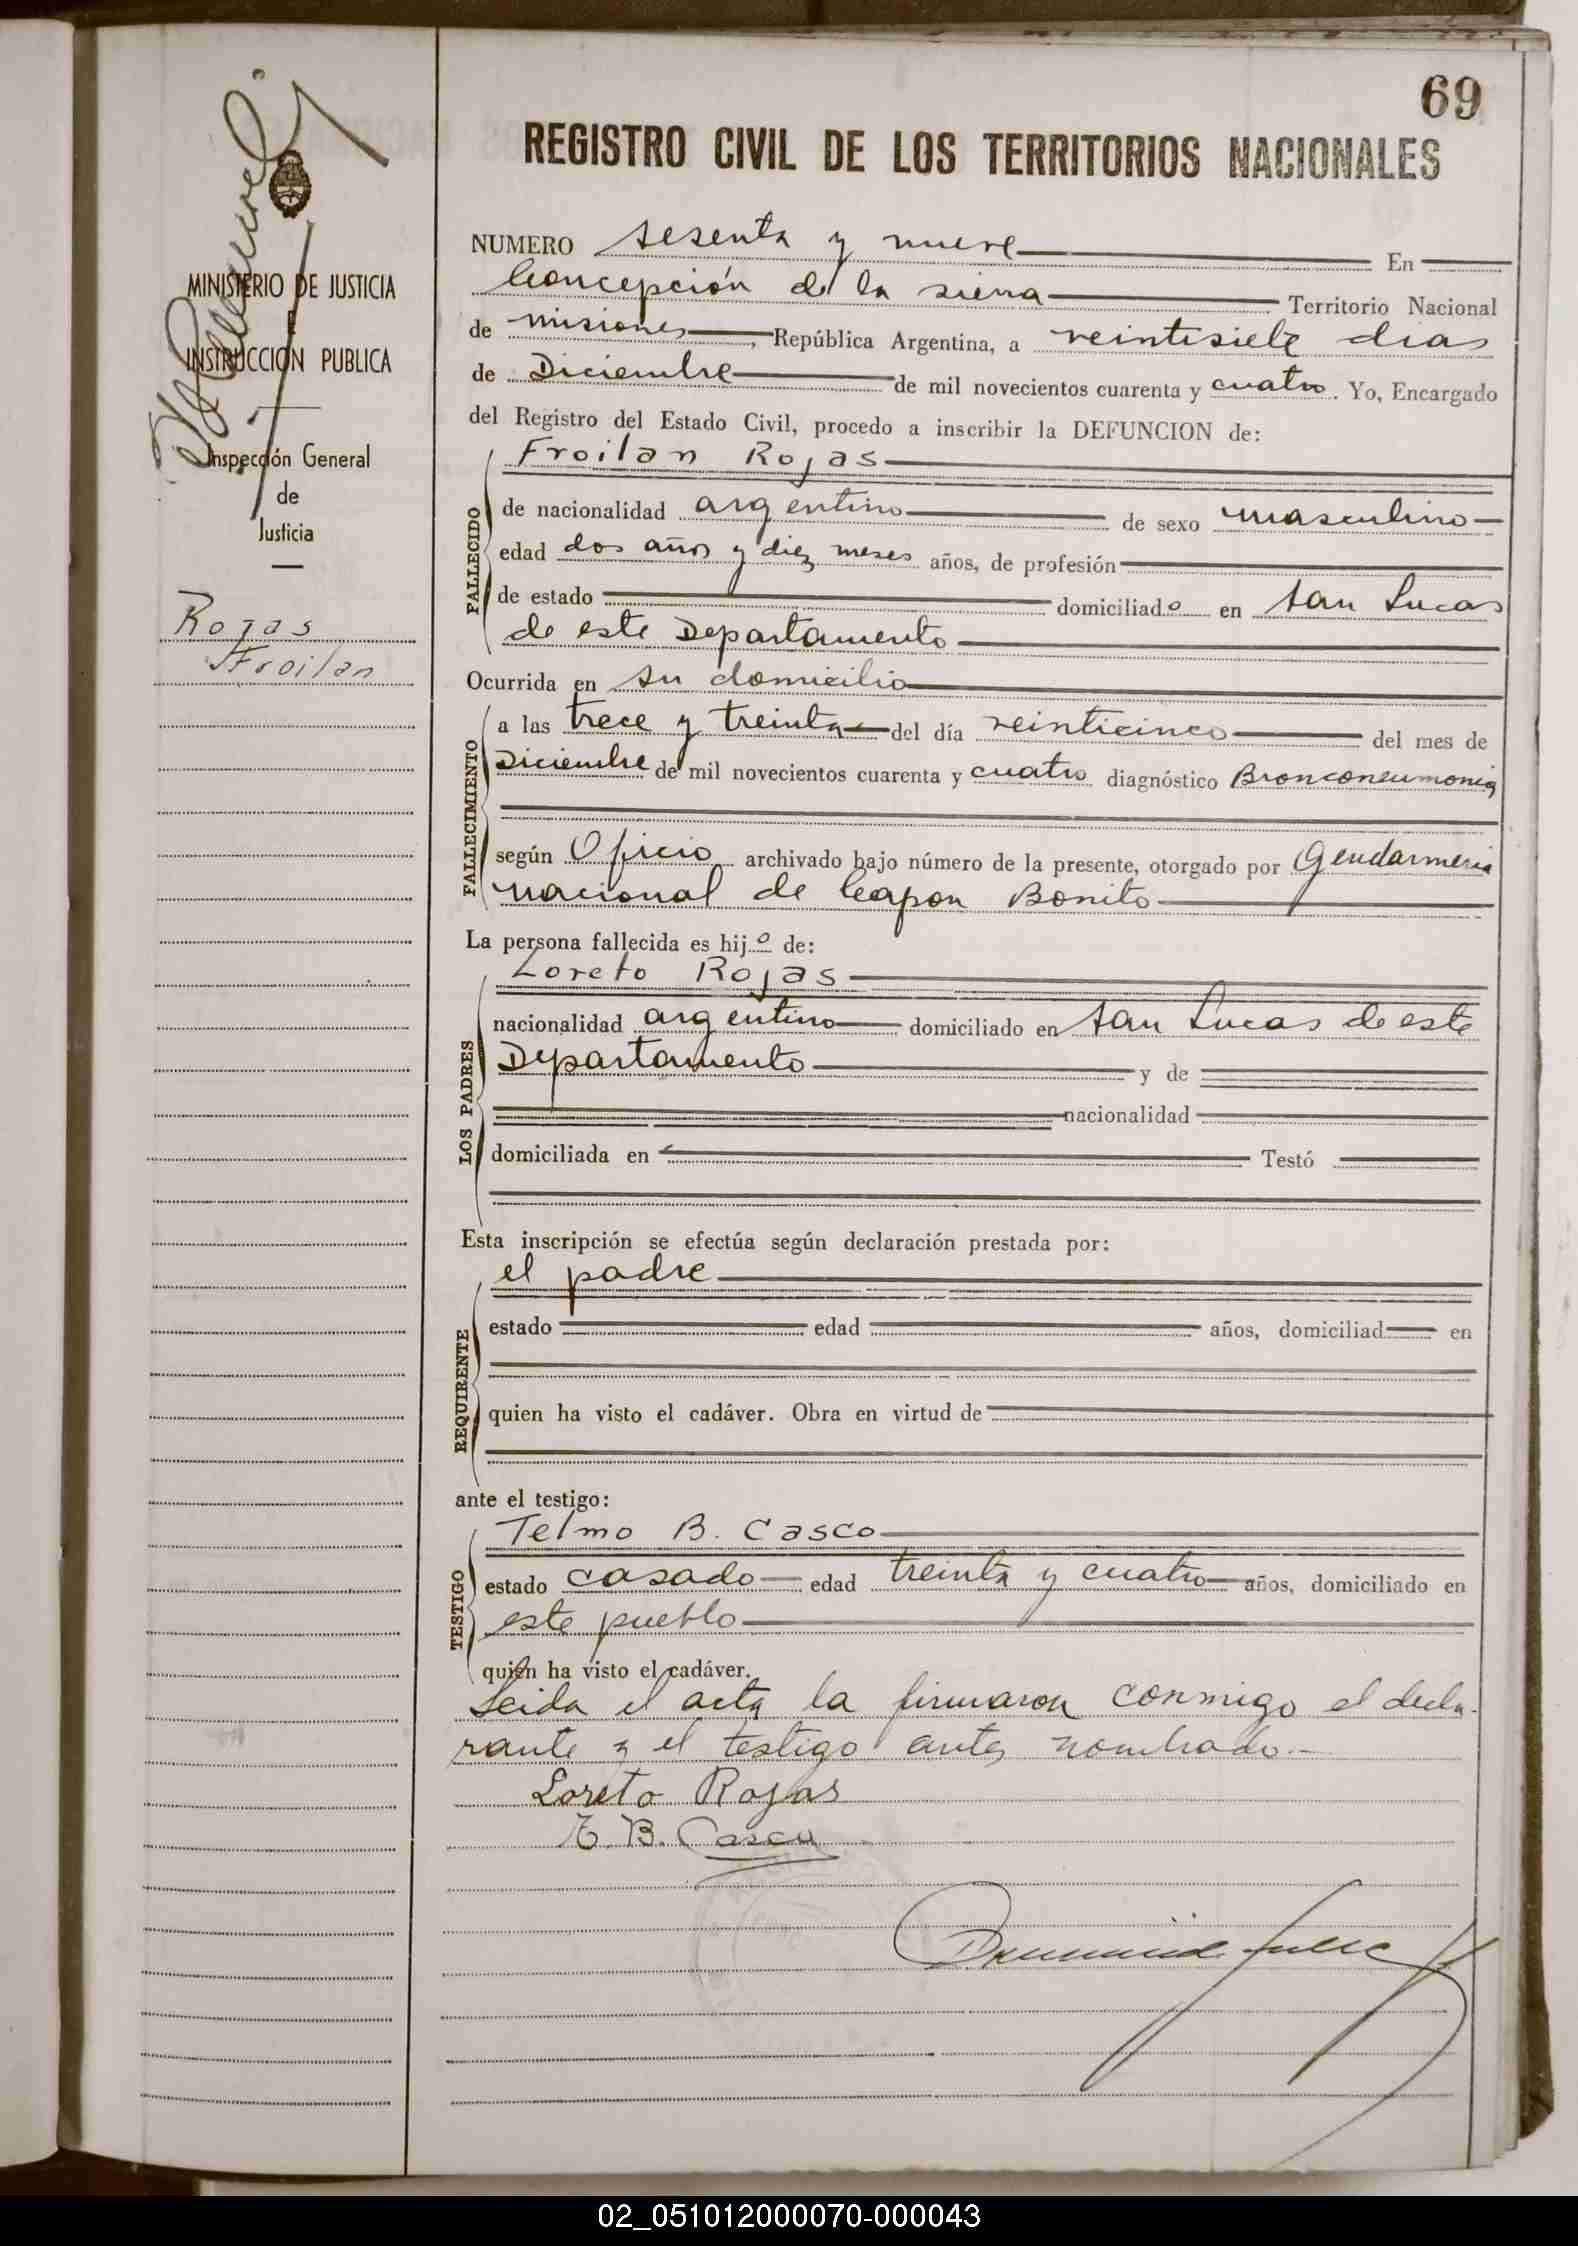 69
REGISTRO CIVIL DE LOS TERRITORIOS NACIONALES
MINISTERIO DE JUSTICIA
E
INSTRUCCIÓN PUBLICA
Inspección General
de
Justicia
Rojas
Froilan
NUMERO sesenta y nueve En
Concepción de la sierra Territorio Nacional
de misiones, República Argentina, a veintisiete dias
de Diciembre de mil novecientos cuarenta y cuatro. Yo, Encargado
del Registro del Estado Civil, procedo a inscribir la DEFUNCION de:
Froilan Rojas
FALLECIDO
de nacionalidad argentino de sexo masculino
edad dos años y diez meses años, de profesión
de estado domiciliado en san Lucas
de este Departamento
Ocurrida en su domicilio
FALLECIMIENTO
a las trece y treinta del día veinticinco del mes de
Diciembre de mil novecientos cuarenta y cuatro diagnóstico Bronconeumonia
según Oficio archivado bajo número de la presente, otorgado por Gendarmeria
nacional de Capon Bonito
La persona fallecida es hijo de:
Loreto Rojas
LOS PADRES
nacionalidad argentino domiciliado en san Lucas de este
Departamento y de
nacionalidad
domiciliada en Testó
Esta inscripción se efectúa según declaración prestada por:
el padre
REQUIRENTE
estado edad años, domiciliad en
quien ha visto el cadáver. Obra en virtud de
ante el testigo:
Telmo B. Casco
TESTIGO
estado casado edad treinta y cuatro años, domiciliado en
este pueblo
quien ha visto el cadáver.
Leida el acta la firmaron conmigo el decla-
rante y el testigo antes nombrado.-
Loreto Rojas
T. B. Casco
02_051012000070-000043